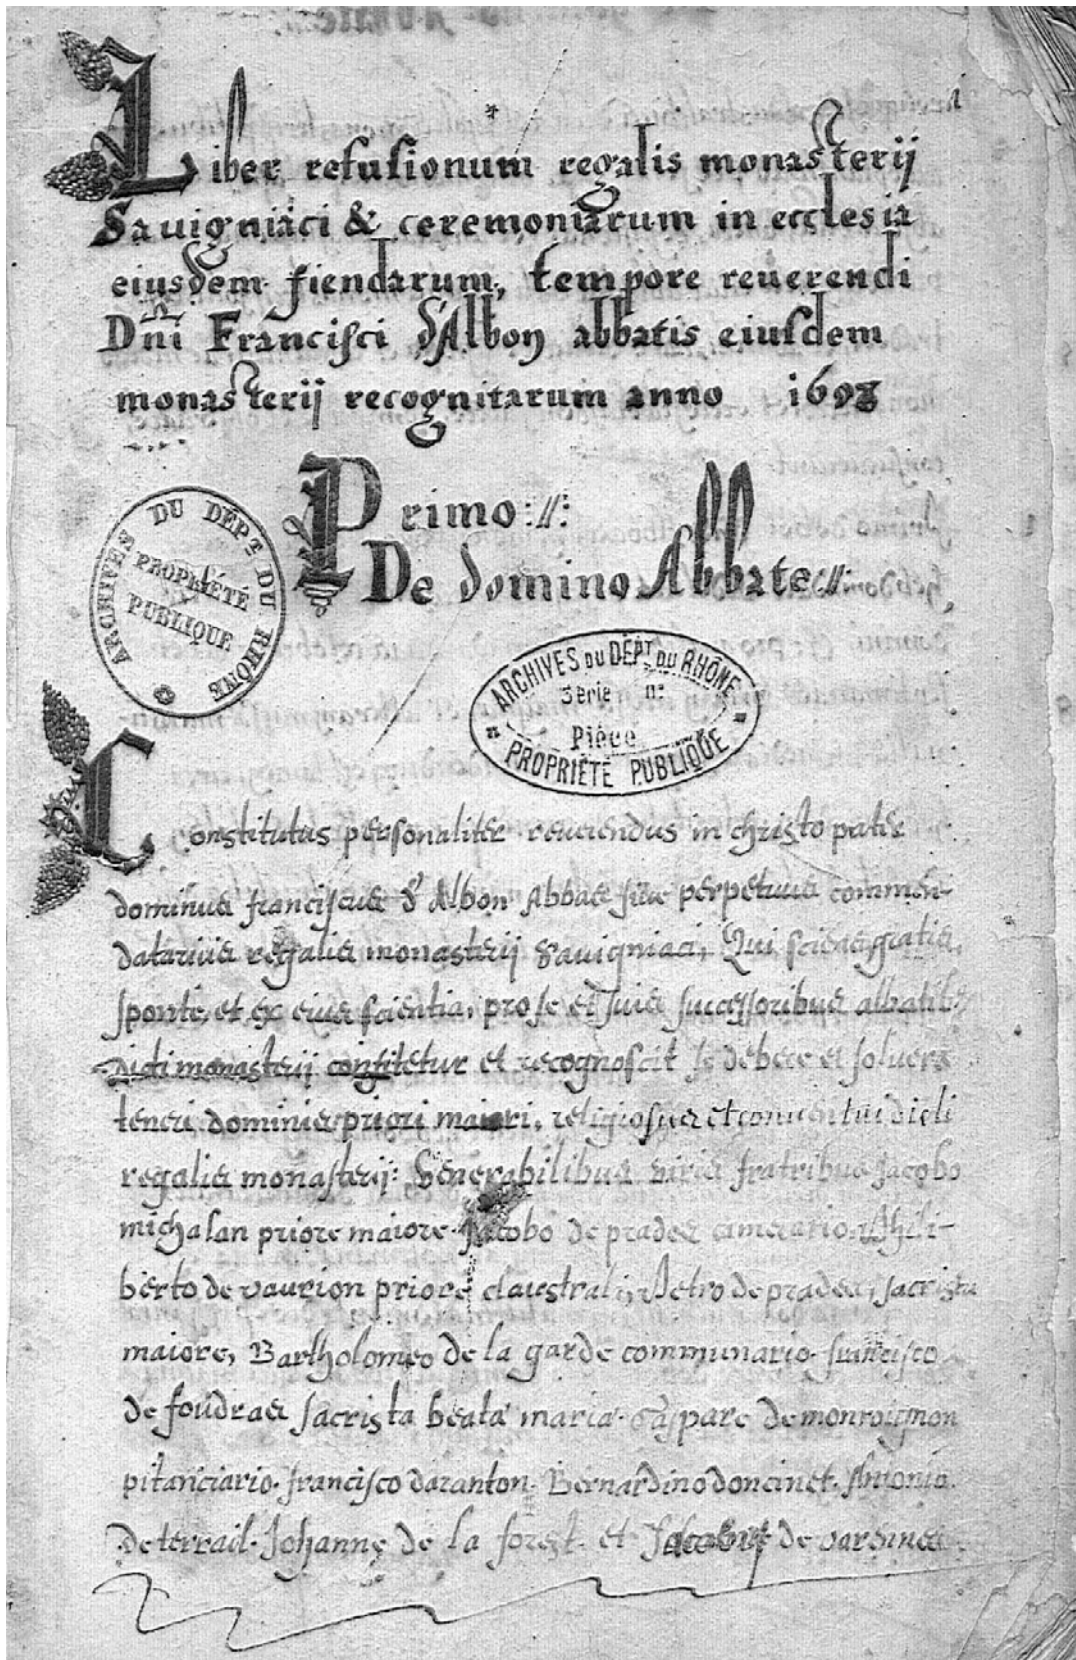 i
Liber refusionum regalis monasterij
Sauigniaci & ceremoniarum in ecclesia
eiusdem fiendarum, tempore reuerendi
Dñi Francisci d'Albon abbatis eiusdem
monasterij recognitarum anno
Primo
De domino Abbate
ARCHIVES DU DÉPT DU RHÔNE
PROPRIÉTÉ
PUBLIQUE
ARCHIVES DU DÉPT DU RHÔNE
Série No
Pièce
PROPRIÉTÉ PUBLIQUE
Constitutus personaliter reuerendus in christo pater
dominus franciscus d'Albon Abbas siue perpetuus commen-
datarius regalis monasterij Sauigniaci, Qui sciens, gratis,
sponte, et ex eius scientia, pro se et suis successoribus abbatib9
dicti monasterij confitetur et recognoscit se debere et soluere
teneri dominis priori maiori, religiosis et conuentui dicti
regalis monasterij: Venerabilibus viris fratribus Jacobo
michalan priore maiore. Jacobo de prades camerario. Phili-
berto de vaurion priore claustrali, Petro de prades, sacrista
maiore, Bartholomeo de la garde communario. francisco
de foudras sacrista beatæ mariæ. Gaspare de montoignon
pitanciario. francisco daranton. Bernardino doncinet. Antonio
de terrail. Johanne de la forest. et de